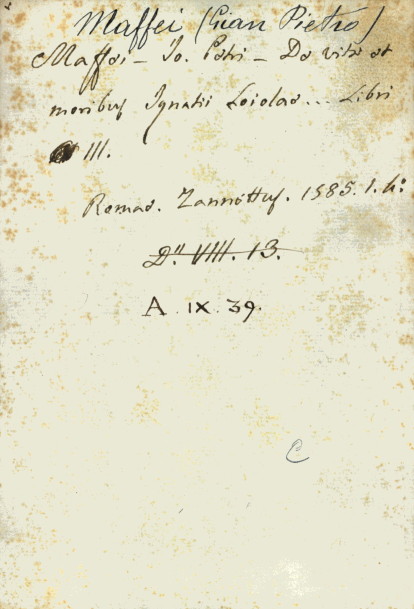 Maffei (Gian Pietro)
Maffei - Jo. Petri - De vita et
moribus Ignatii Loiolae... Libri
III.
Romae. Zannettus. 1585. 1. 4:
D." VIII. 13.
A. IX. 39.
C